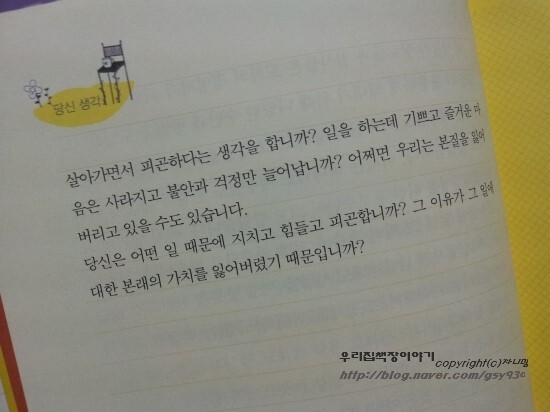 당신 생각
살아가면서 피곤하다는 생각을 합니까? 일을 하는데 기쁘고 즐거운 마
음은 사라지고 불안과 걱정만 늘어납니까? 어쩌면 우리는 본질을 잃어
버리고 있을 수도 있습니다.
당신은 어떤 일 때문에 지치고 힘들고 피곤합니까? 그 이유가 그 일에
대한 본래의 가치를 잃어버렸기 때문입니까?
우리집책장이야기
copyright(c)쟈니맘
http://blog.naver.com/gsy930